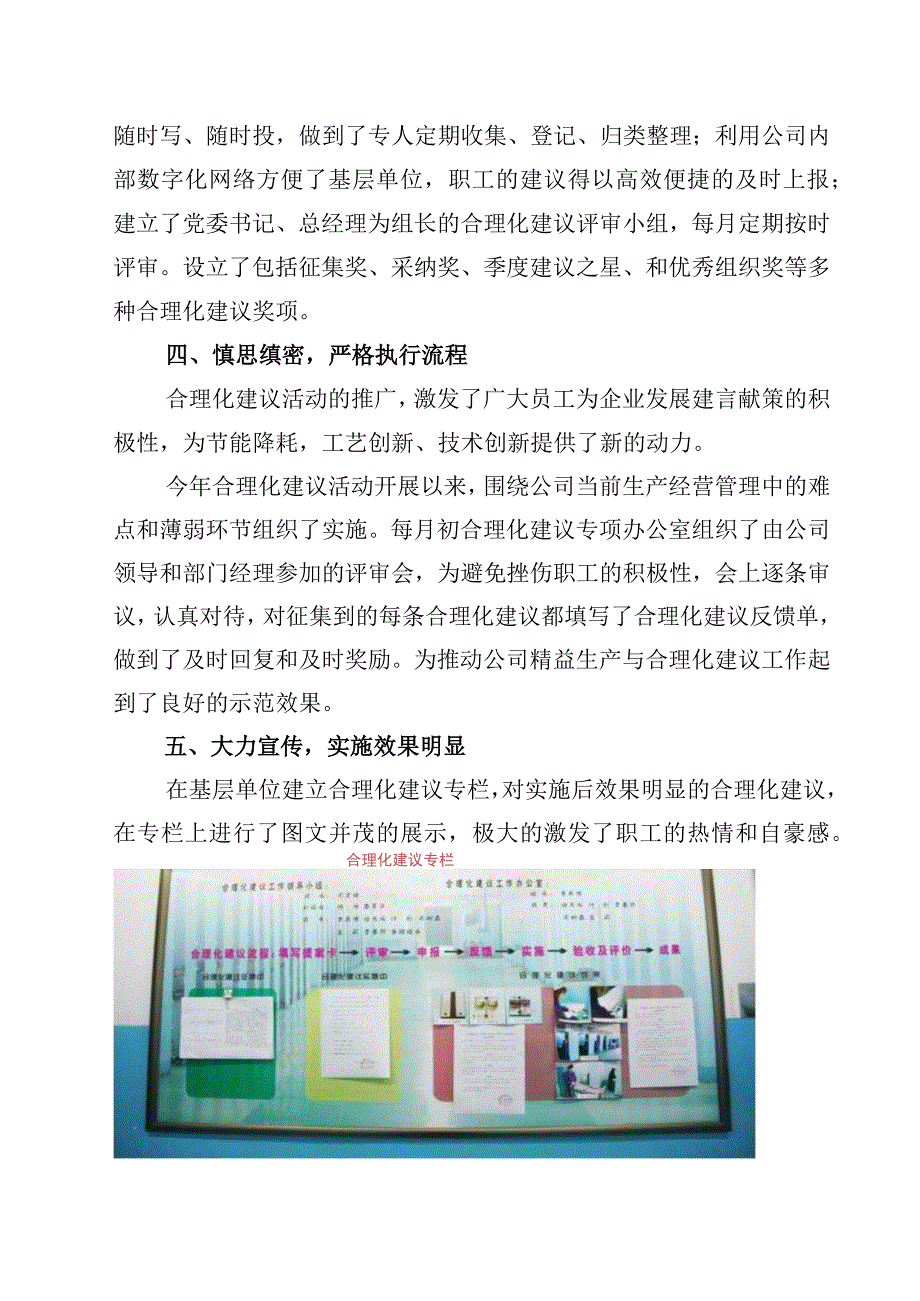 随时写、随时投，做到了专人定期收集、登记、归类整理；利用公司内
部数字化网络方便了基层单位，职工的建议得以高效便捷的及时上报；
建立了党委书记、总经理为组长的合理化建议评审小组，每月定期按时
评审。设立了包括征集奖、采纳奖、季度建议之星、和优秀组织奖等多
种合理化建议奖项。
四、慎思缜密，严格执行流程
合理化建议活动的推广，激发了广大员工为企业发展建言献策的积
极性，为节能降耗，工艺创新、技术创新提供了新的动力。
今年合理化建议活动开展以来，围绕公司当前生产经营管理中的难
点和薄弱环节组织了实施。每月初合理化建议专项办公室组织了由公司
领导和部门经理参加的评审会，为避免挫伤职工的积极性，会上逐条审
议，认真对待，对征集到的每条合理化建议都填写了合理化建议反馈单，
做到了及时回复和及时奖励。为推动公司精益生产与合理化建议工作起
到了良好的示范效果。
五、大力宣传，实施效果明显
在基层单位建立合理化建议专栏，对实施后效果明显的合理化建议，
在专栏上进行了图文并茂的展示，极大的激发了职工的热情和自豪感。
合理化建议专栏
合理化建议工作领导小组：
合理化建议工作办公室：
合理化建议流程：填写提案卡→评审→申报→反馈→实施→验收及评价→成果
合理化建议实施中